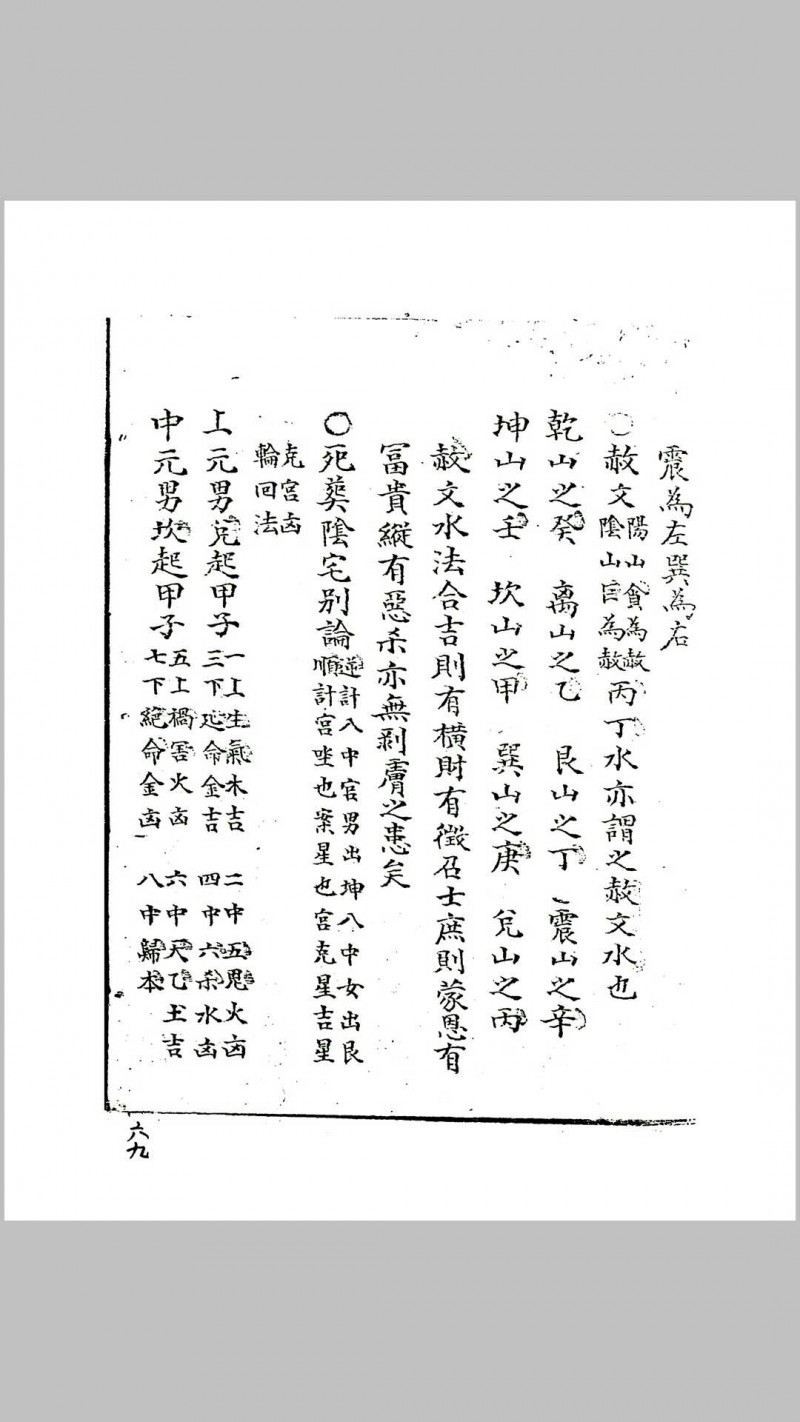 震為左巽為右
〇赦文陽山貪為赦陰山巨為赦丙丁水亦謂之赦文水也
乾山之癸 离山之乙 艮山之丁 震山之辛
坤山之壬 坎山之甲 巽山之庚 兌山之丙
赦文水法合吉則有橫財有徵召士庶則蒙恩有
冨貴縱有惡杀亦無剥膚之患矣
〇死葬陰宅别論逆計八中宫男出坤八中女出艮順計宫坐也案星也宫克星吉星
克宫凶輪回法
上元男兌起甲子一上生氣木吉 二中五鬼火凶三下延命金吉 四中六杀水凶
中元男坎起甲子五上禍害火凶 六中天乙土吉七下絕命金凶 八中歸本
六九